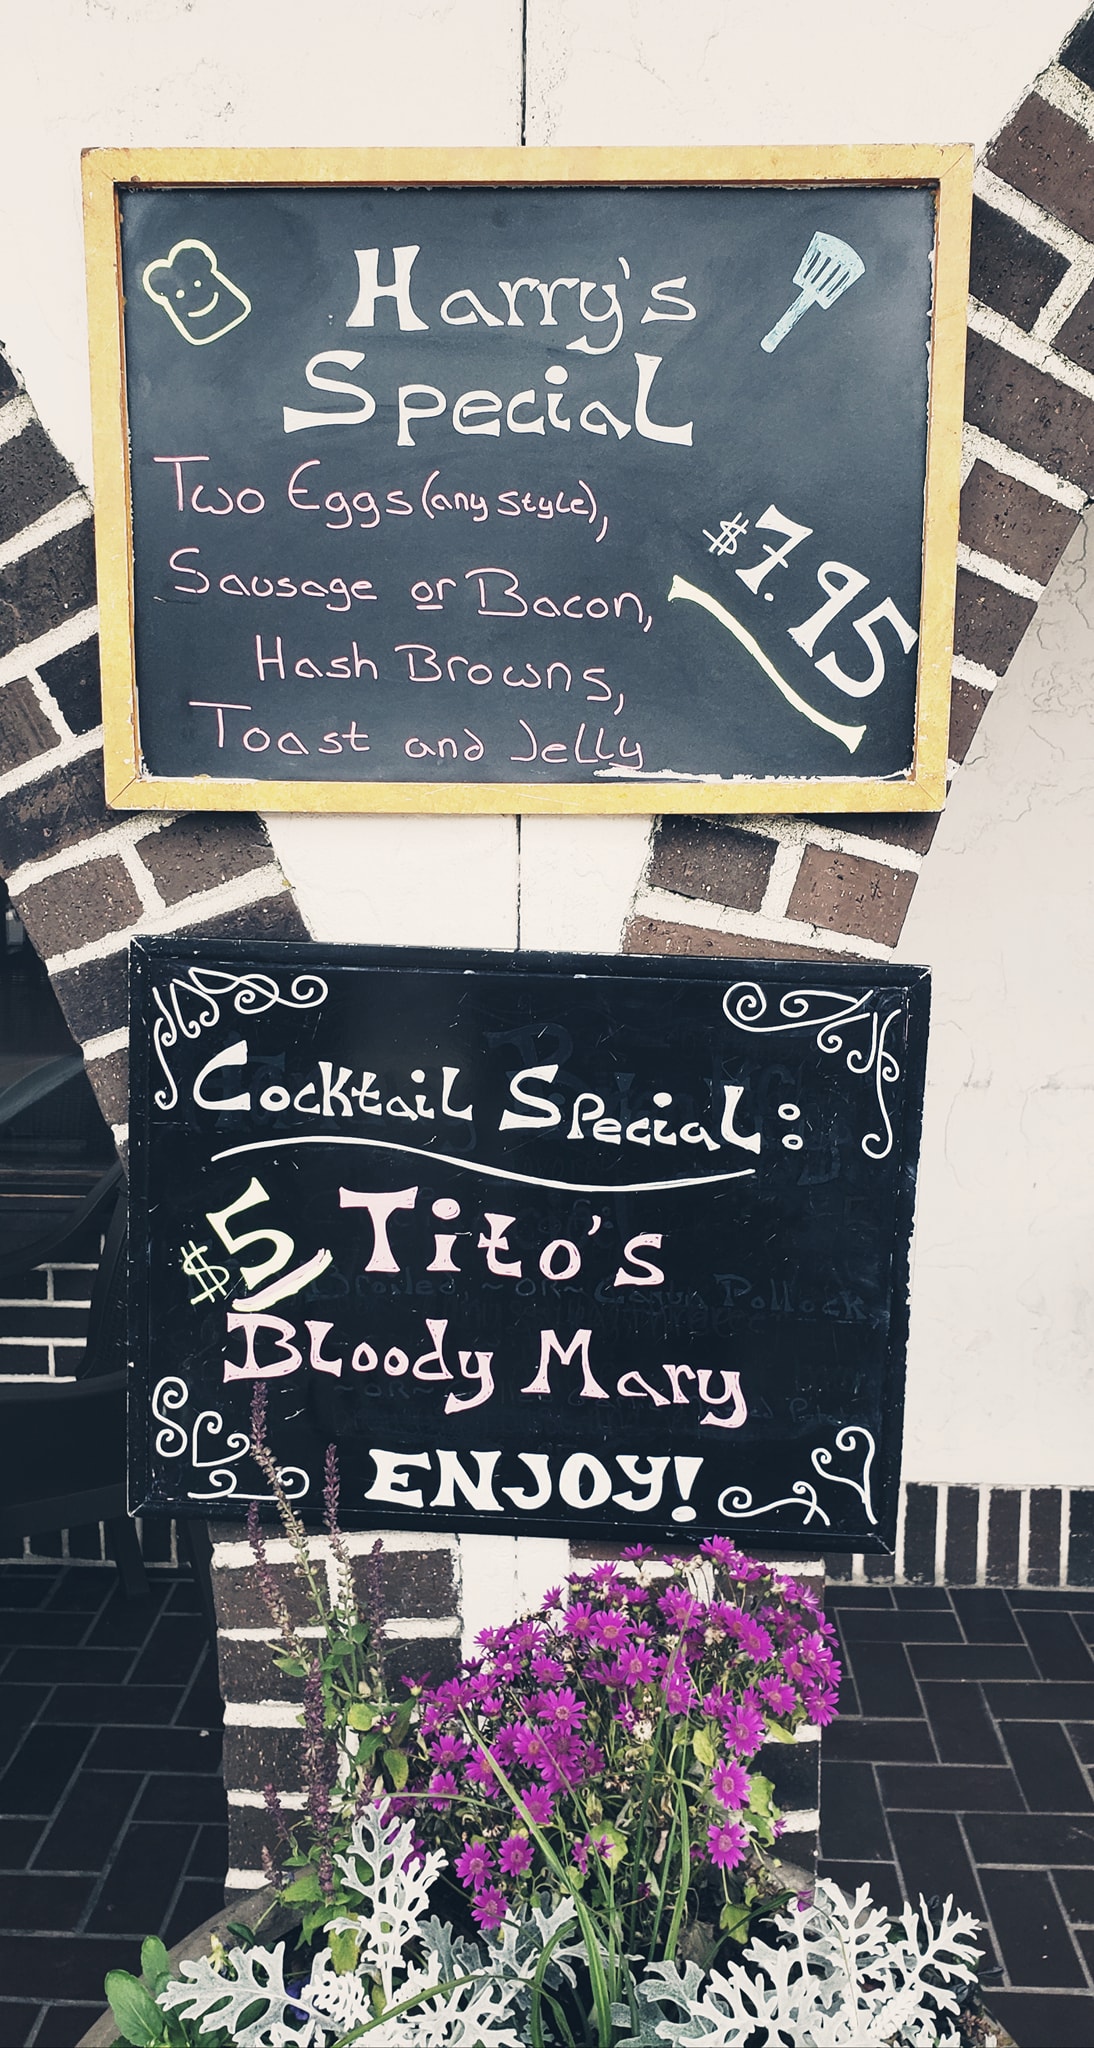 Harry's
Special
Two Eggs (any style),
Sausage or Bacon,
Hash Browns,
Toast and Jelly
$7.95
Cocktail Special:
$5 Tito's
Bloody Mary
ENJOY!
Broiled, ~OR~ Cajun Pollock
~OR~